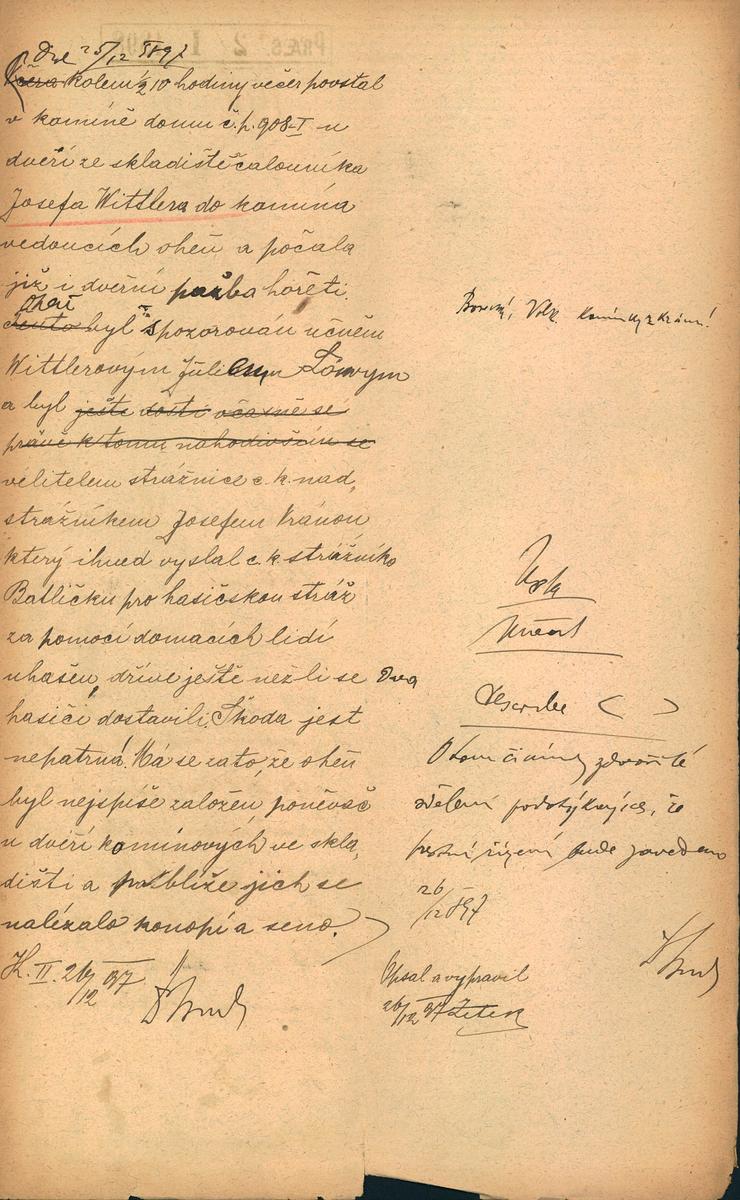 Dne 25/12 897
včera kolem ½10 hodiny večer povstal
v komíně domu č.p. 908-I u
dveří ze skladiště čalouníka
Josefa Wittlera do komína
vedoucích oheň a počala
již i dveřní pažba hořeti.
Oheň
tento byl spozorován učněm
Wittlerovým Juliem Löwym
a byl ještě dosti včasně se
právě k tomu nahodivším se
velitelem strážnice c. k. nad
strážníkem Josefem Vránou
který ihned vyslal c. k. strážníka
Batličku pro hasičskou stráž
za pomoci domácích lidí
uhašen, dříve ještě nežli se
hasiči dostavili. Škoda jest
nepatrná. Má se za to, že oheň
byl nejspíše založen, poněvač
u dveří komínových ve skla
dišti a poblíže jich se
nalézalo konopí a seno.
K. II. 26/12 97
O tom činíme zdvořilé
sdělení podotýkajíce, že
trestní řízení bude zavedeno
26/12 897
Opsal a vypravil
26/12 97